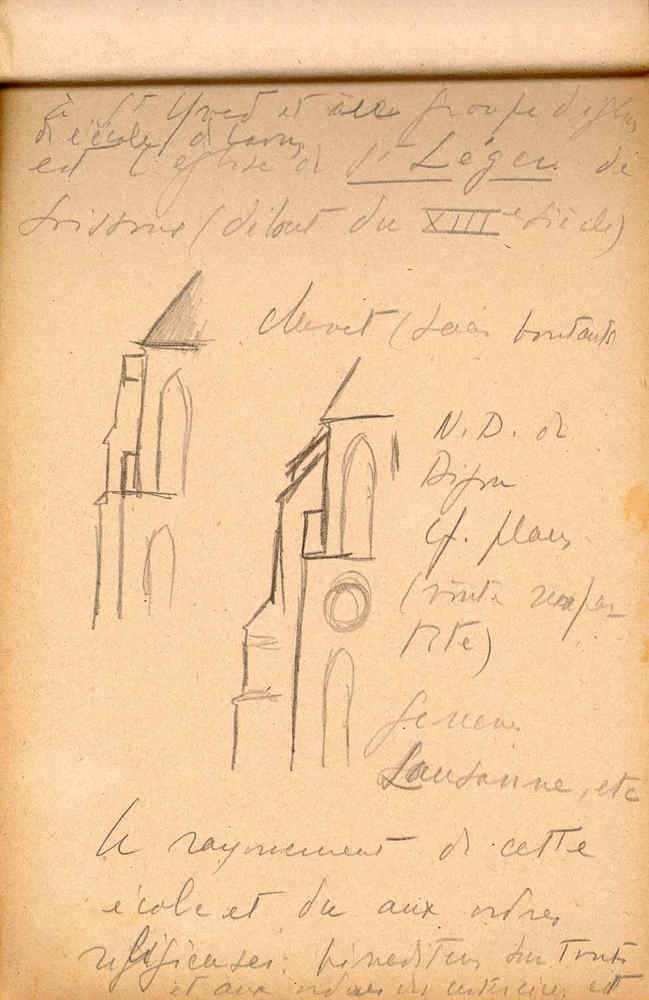 à St Yved et au groupe d'églis
de l'école de Laon,
est l'église de St Léger de
Soissons (début du XIIIe siècle)
chevet (sans boutants
N.D. de
Dijon
cf. plan
(voûte sexpar
tite)
Genève
Lausanne, etc
le rayonnement de cette
école est du aux ordres
religieuses: bénédictins surtout
et aux ordres
est